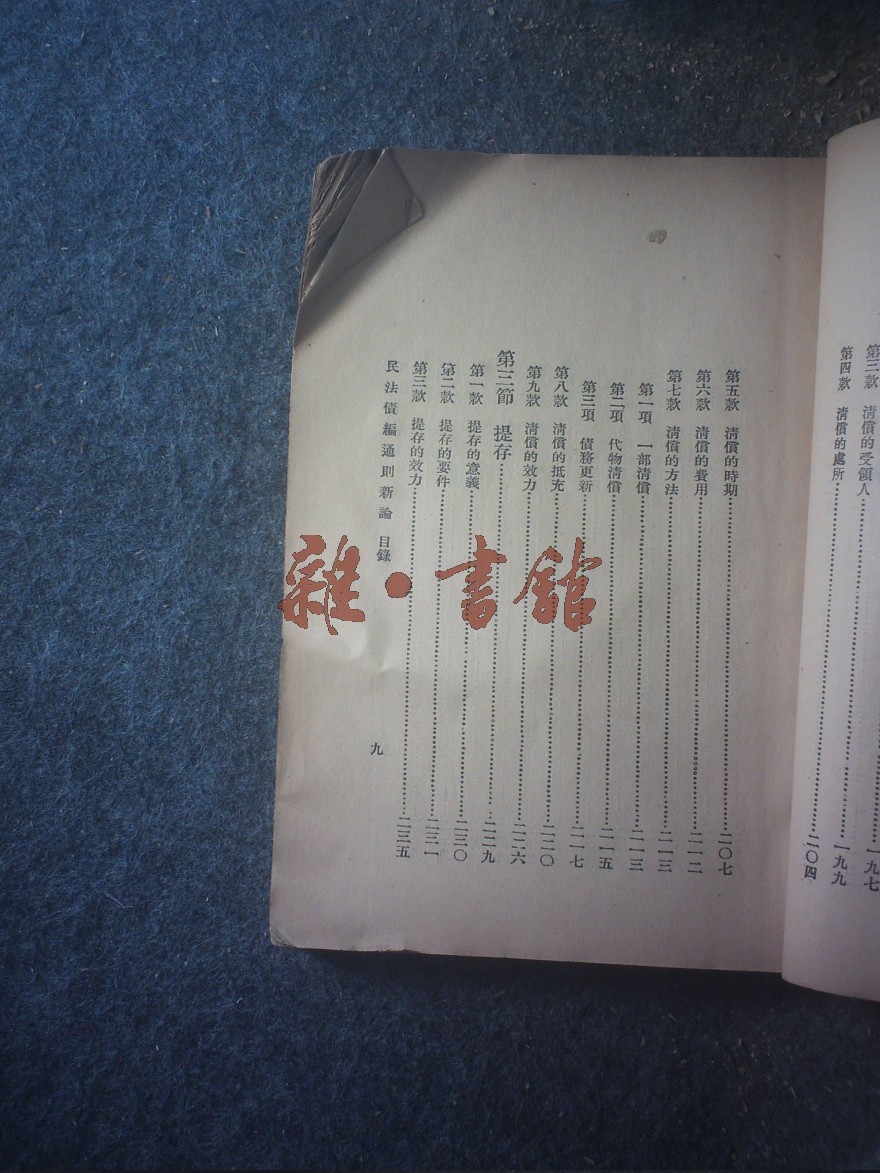 第三款 清償的受領人 一九七
第四款 清償的處所 一九九
二〇四
第五款 清償的時期 二〇七
第六款 清償的費用 二一二
第七款 清償的方法 二一三
第一項 一部清償 二一三
第二項 代物清償 二一五
第三項 債務更新 二一七
第八款 清償的抵充 二二〇
第九款 清償的效力 二二六
第三節 提存 二二九
第一款 提存的意義 二三〇
第二款 提存的要件 二三一
第三款 提存的效力 二三五
民法債編通則新論 目錄
九
雜·書館